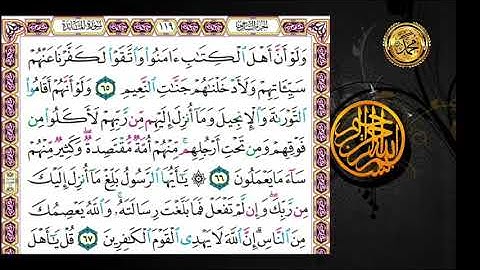 سورة المائدة
١١٩
الجزء السادس
وَلَوْ أَنَّ أَهْلَ ٱلْكِتَٰبِ ءَامَنُوا۟ وَٱتَّقَوْا۟ لَكَفَّرْنَا عَنْهُمْ
سَيِّـَٔاتِهِمْ وَلَأَدْخَلْنَٰهُمْ جَنَّٰتِ ٱلنَّعِيمِ ٦٥ وَلَوْ أَنَّهُمْ أَقَامُوا۟
ٱلتَّوْرَىٰةَ وَٱلْإِنجِيلَ وَمَآ أُنزِلَ إِلَيْهِم مِّن رَّبِّهِمْ لَأَكَلُوا۟ مِن
فَوْقِهِمْ وَمِن تَحْتِ أَرْجُلِهِم مِّنْهُمْ أُمَّةٌ مُّقْتَصِدَةٌ وَكَثِيرٌ مِّنْهُمْ
سَآءَ مَا يَعْمَلُونَ ٦٦ ۞ يَٰٓأَيُّهَا ٱلرَّسُولُ بَلِّغْ مَآ أُنزِلَ إِلَيْكَ
مِن رَّبِّكَ وَإِن لَّمْ تَفْعَلْ فَمَا بَلَّغْتَ رِسَالَتَهُۥ وَٱللَّهُ يَعْصِمُكَ
مِنَ ٱلنَّاسِ إِنَّ ٱللَّهَ لَا يَهْدِى ٱلْقَوْمَ ٱلْكَٰفِرِينَ ٦٧ قُلْ يَٰٓأَهْلَ
محمد
بسم الله الرحمن الرحيم